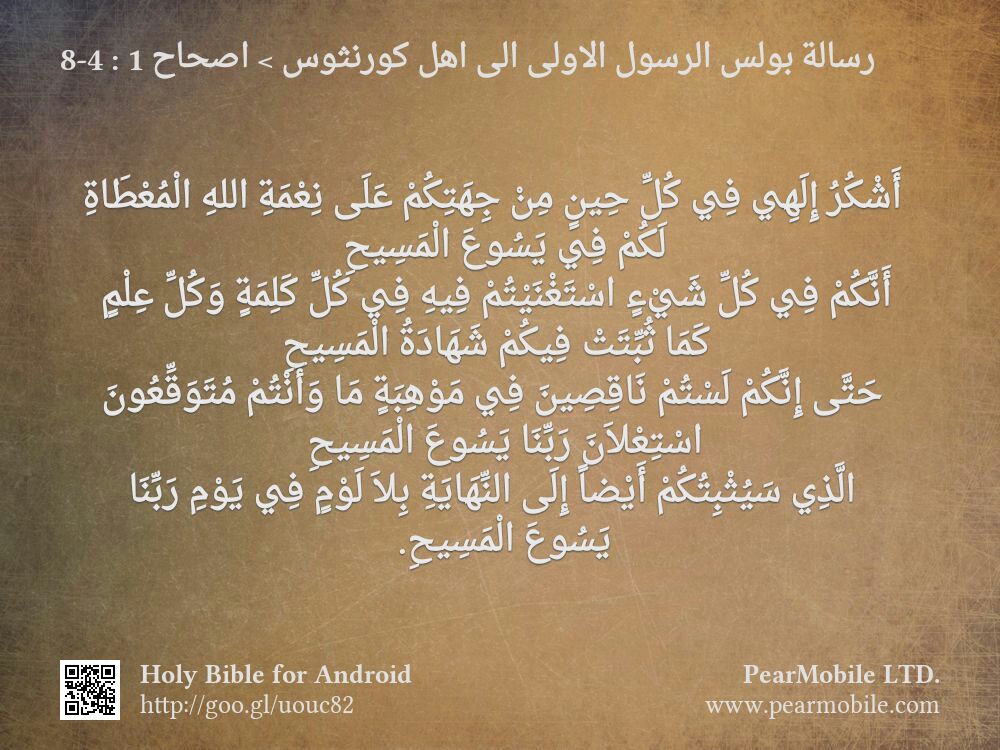 رسالة بولس الرسول الاولى الى اهل كورنثوس > اصحاح 1 : 4-8
أَشْكُرُ إِلَهِي فِي كُلِّ حِينٍ مِنْ جِهَتِكُمْ عَلَى نِعْمَةِ اللهِ الْمُعْطَاةِ
لَكُمْ فِي يَسُوعَ الْمَسِيحِ
أَنَّكُمْ فِي كُلِّ شَيْءٍ اسْتَغْنَيْتُمْ فِيهِ فِي كُلِّ كَلِمَةٍ وَكُلِّ عِلْمٍ
كَمَا ثُبِّتَتْ فِيكُمْ شَهَادَةُ الْمَسِيحِ
حَتَّى إِنَّكُمْ لَسْتُمْ نَاقِصِينَ فِي مَوْهِبَةٍ مَا وَأَنْتُمْ مُتَوَقِّعُونَ
اسْتِعْلاَنَ رَبِّنَا يَسُوعَ الْمَسِيحِ
الَّذِي سَيُثْبِتُكُمْ أَيْضاً إِلَى النِّهَايَةِ بِلاَ لَوْمٍ فِي يَوْمِ رَبِّنَا
يَسُوعَ الْمَسِيحِ.
Holy Bible for Android
http://goo.gl/uouc82
PearMobile LTD.
www.pearmobile.com